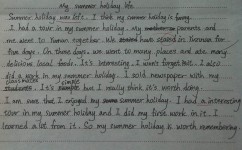 My summer holiday life
Summer holiday was left. I think my summer holiday is funny.
I had a tour in my summer holiday. My parents and
me went to Yunnan together. We have stayed in Yunnan for
five days. On these days, we went to many places and ate many
delicious local foods. It's interesting. I won't forget. But I also
did a work in my summer holiday. I sold newspaper with my
students. It's simple but I really think it's worth doing.
I am sure that I enjoyed my summer holiday. I had a interesting
tour in my summer holiday and I did my first work in it. I
learned a lot from it. So my summer holiday is worth remembering.